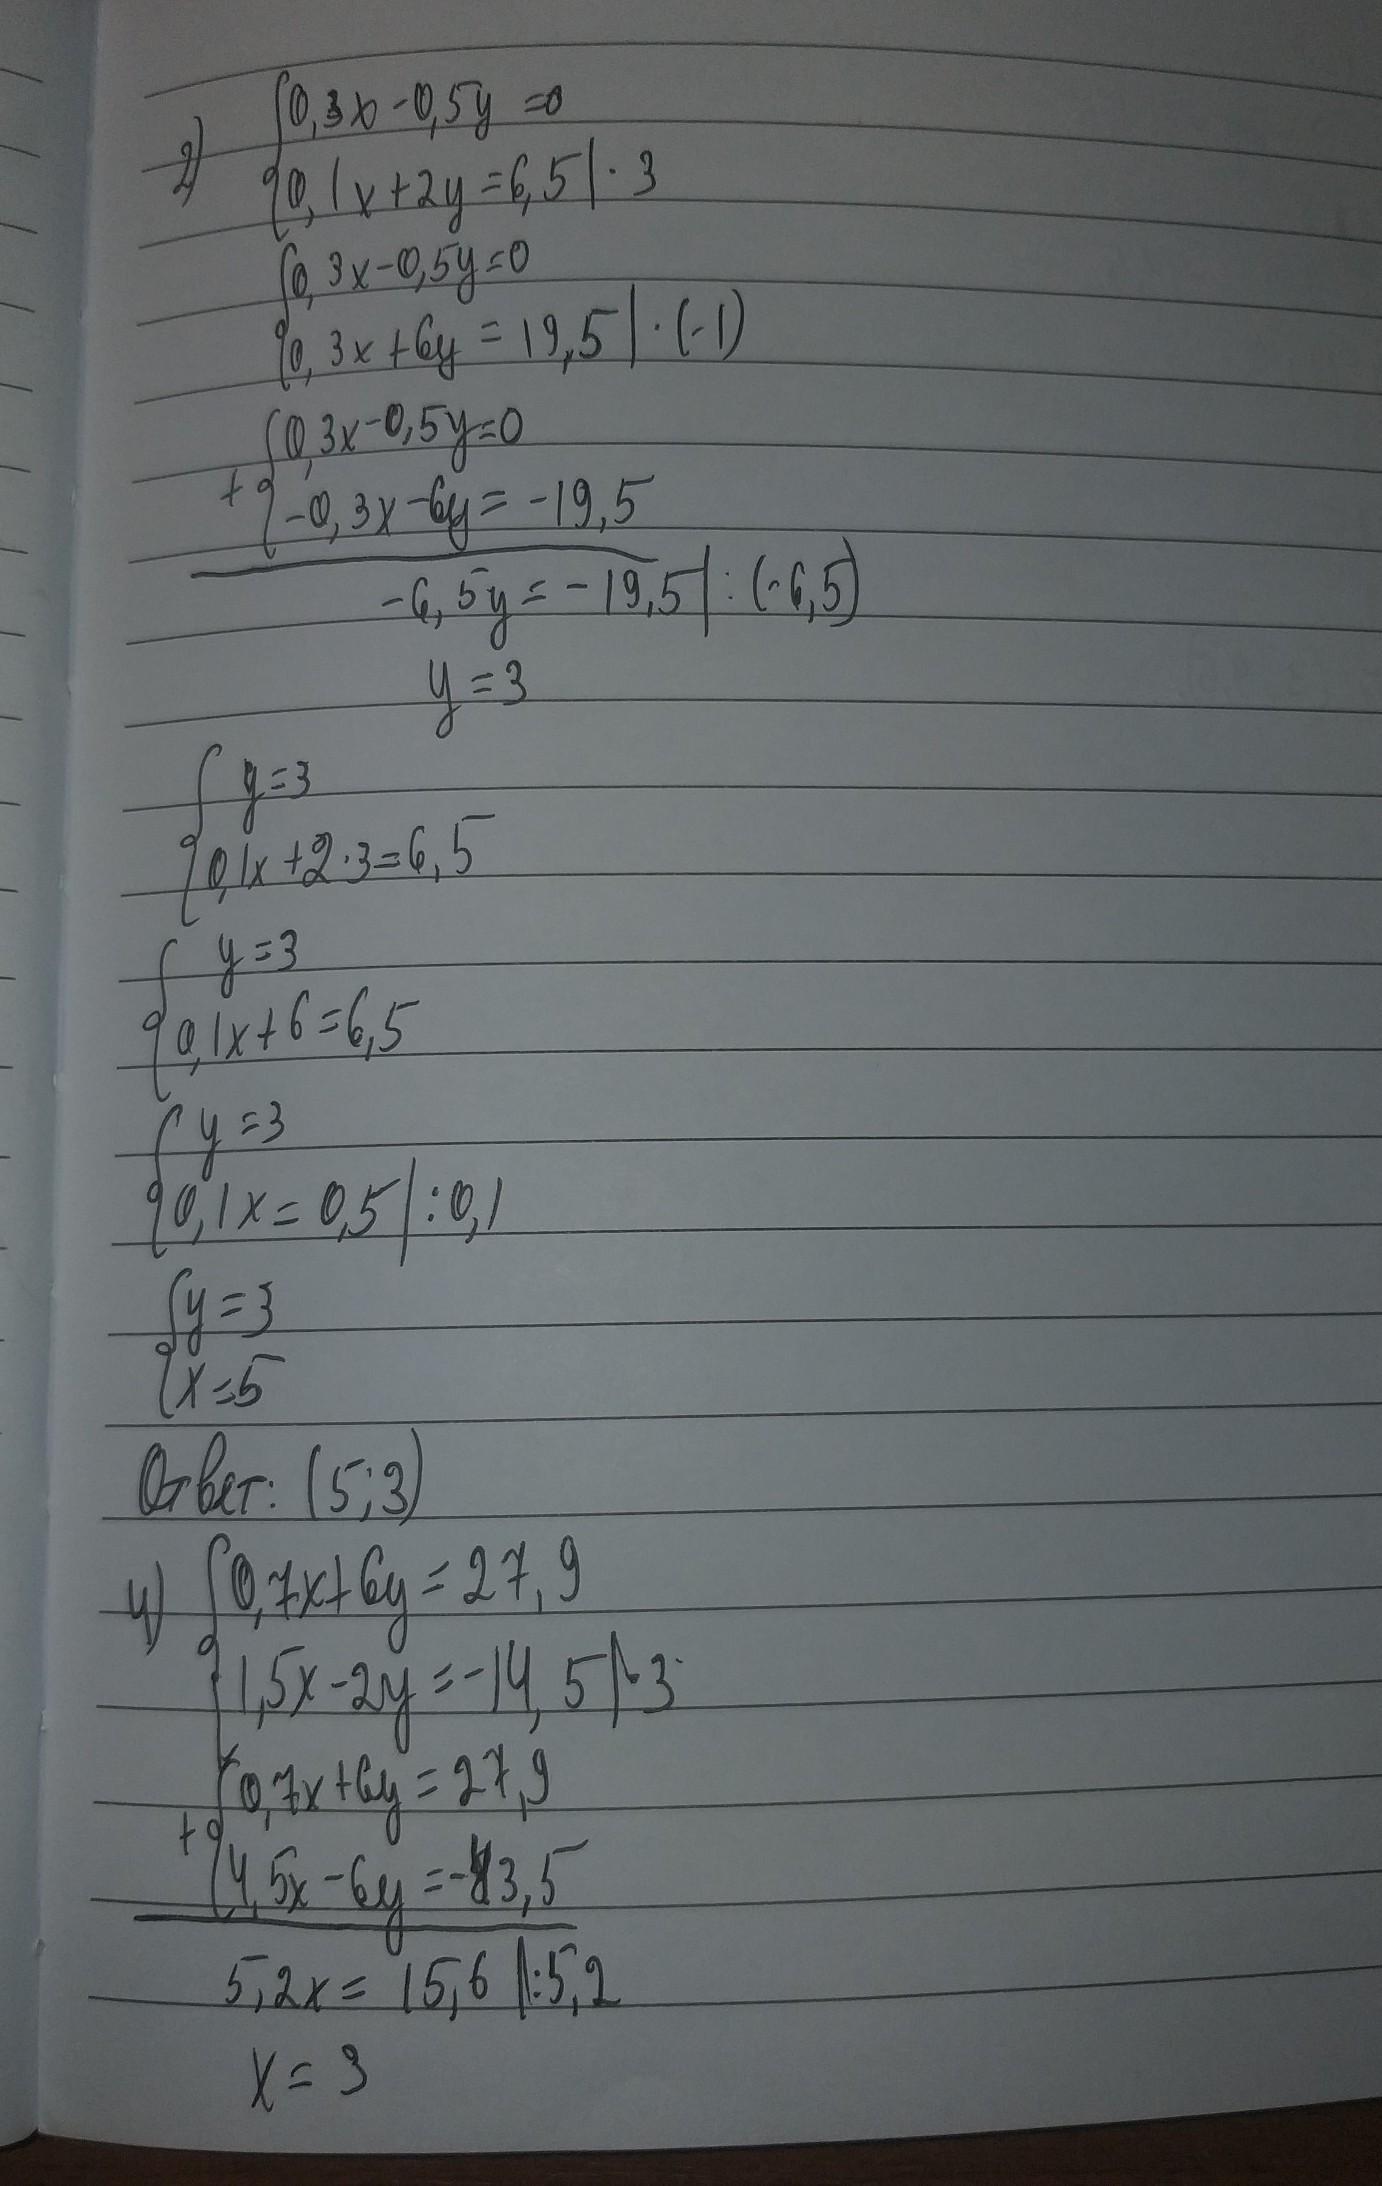 2) {0,3x-0,5y=0
{0,1x+2y=6,5|·3
{0,3x-0,5y=0
{0,3x+6y=19,5|·(-1)
{0,3x-0,5y=0
+{-0,3x-6y=-19,5
-6,5y=-19,5|:(-6,5)
y=3
{y=3
{0,1x+2·3=6,5
{y=3
{0,1x+6=6,5
{y=3
{0,1x=0,5|:0,1
{y=3
{x=5
Ответ: (5;3)
4) {0,7x+6y=27,9
{1,5x-2y=-14,5|·3
{0,7x+6y=27,9
+{4,5x-6y=-43,5
5,2x=15,6|:5,2
x=3